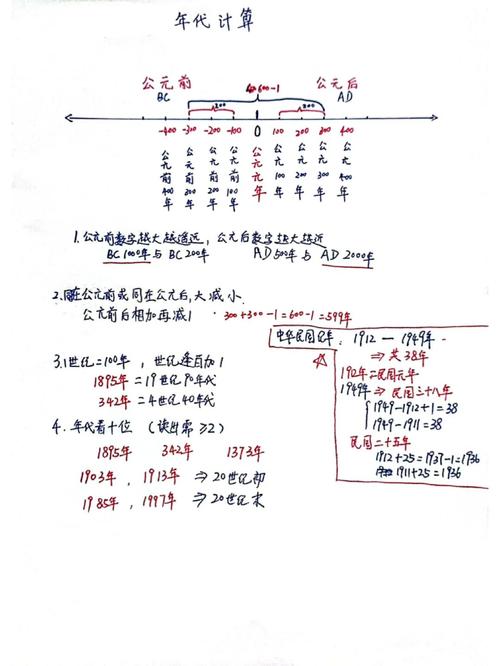 年代计算
公元前 公元后
BC AD
600-1
200 200
-400 -300 -200 -100 0 100 200 300 400
公元前400年 公元前300年 公元前200年 公元前100年 公元元年 公元100年 公元200年 公元300年 公元400年
1.公元前数字越大越遥远,公元后数字越大越近
BC1000年与BC200年 AD500年与AD2000年
2.同在公元前或同在公元后,大减小.
公元前后相加再减1 · 300+300-1=600-1=599年
3.1世纪=100年,世纪逢百加1
1895年=19世纪90年代
342年=4世纪40年代
4.年代看十位(读出第≥2)
1895年 342年 1373年
1903年,1913年⇒20世纪初
1985年,1997年⇒20世纪末
中华民国纪年:1912—1949年.
⇒共38年
1912年=民国元年
1949年⇒民国三十八年
1949-1912+1=38
1949-1911=38
民国二十五年
1912+25=1937-1=1936
1911+25=1936